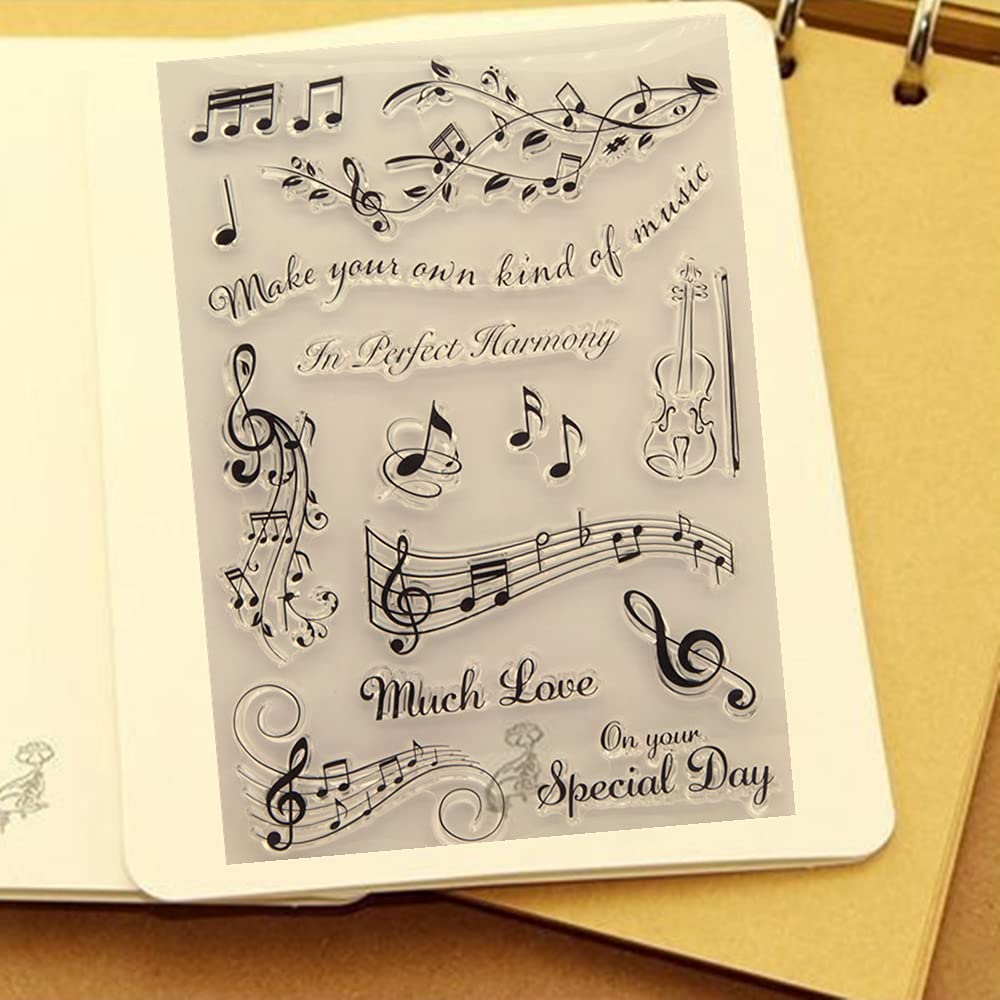 Make your own kind of music
In Perfect Harmony
Much Love
On your
Special Day